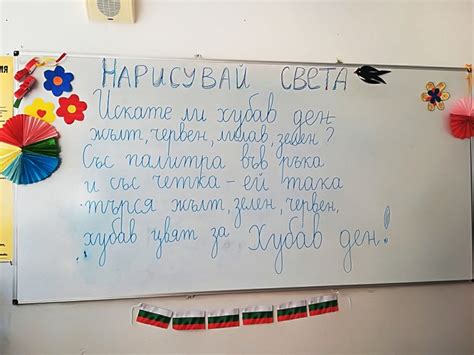 НАРИСУВАЙ СВЕТА
Искате ли хубав ден
жълт, червен, лилав, зелен?
Със палитра във ръка
и със четка – ей така
търся жълт, зелен, червен,
хубав цвят за Хубав ден!